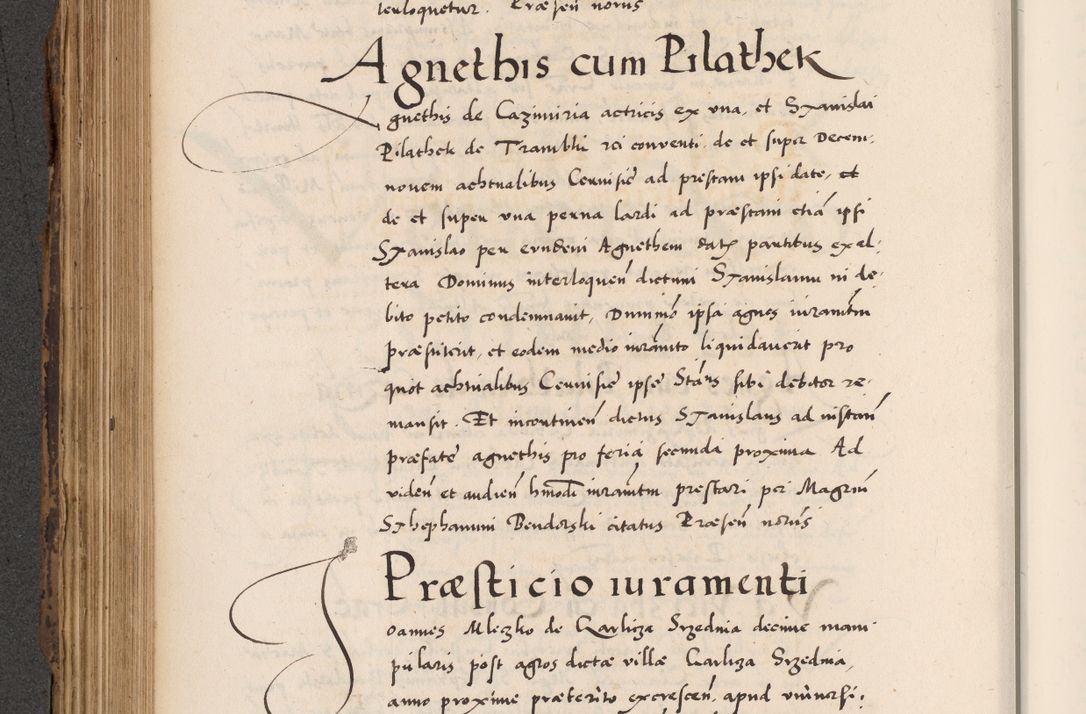 terloquetur. Præsen̄ notus
Agnethis cum Pilathek
Agnethis de Cazimiria actricis ex vna, et Stanislai
Pilathek de Trambki rei conventi de et super Decem,
novem achtualibus Cervisie ad prestam ipsi date, et
de et super vna perna lardi ad præstam etiā ipsi
Stanislao per eandem Agnethem dat partibus ex al,
tera Dominus interloquen̄ dictum Stanislaum in de,
bito petito condemnavit, Dummō ipsa agnes iuramtm
præstiterit, et eodem medio iuramto liquidaverit pro
quot achtualibus Cervisie ipse Stans sibi debitor re,
mansit. Et incontinen̄ dictus Stanislaus ad instan̄
præfate agnethis pro feria secunda proxima Ad
viden̄ et audien̄ hmodi iuramtm prestari per Magrm
Sthephanum Bendorski citatus Præsen̄ notus
Præsticio iuramenti
Joannes Mleczko de Garlicza Srzednia decime mani
pularis post agros dictæ villæ Garlicza Srzednia,
anno proxime præterito excrescen̄, apud vniversi,